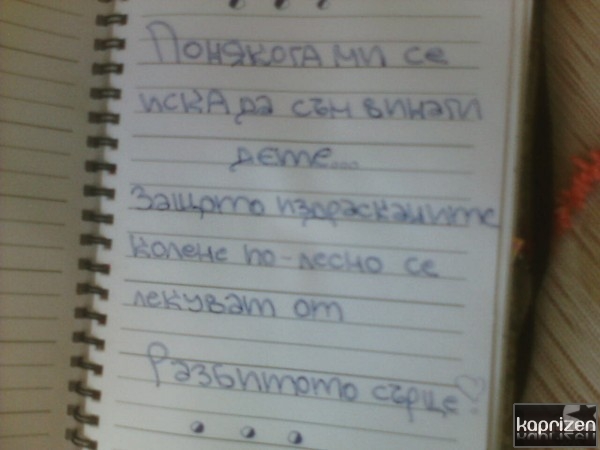 Понякога ми се
иска да съм винаги
дете...
Защото издрасканите
колене по-лесно се
лекуват от
Разбитото сърце
kaprizen